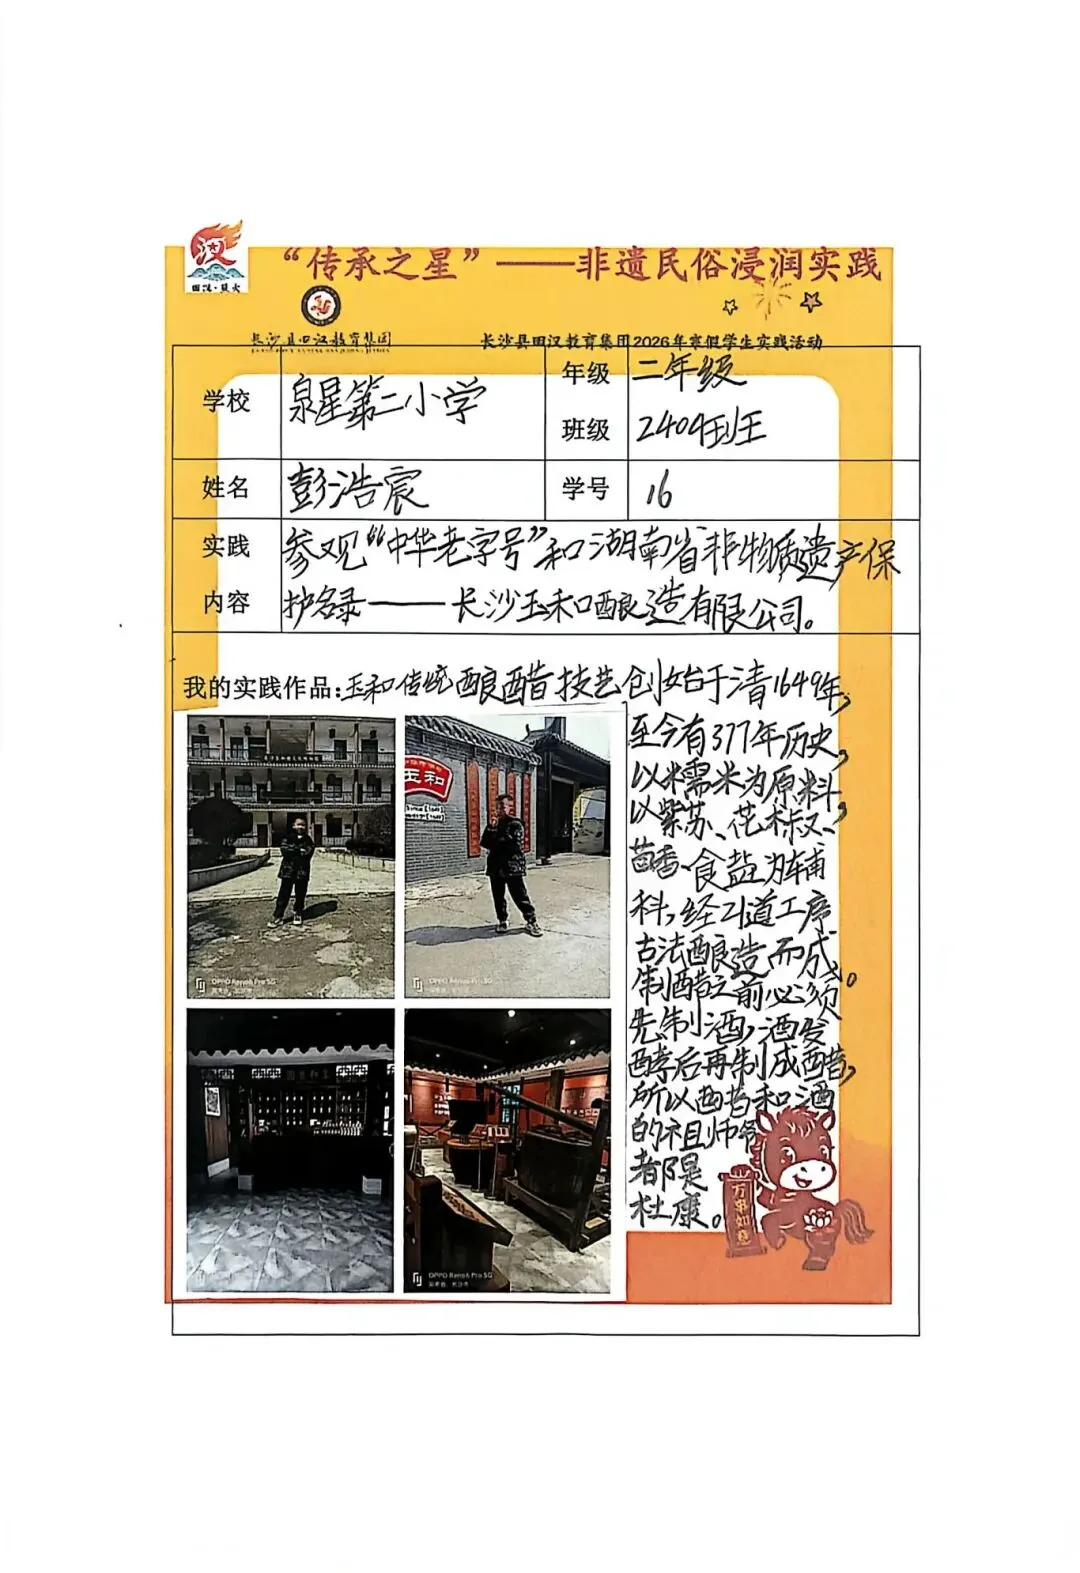 汉
田汉·薪火
“传承之星”——非遗民俗浸润实践
长沙县田汉教育集团
长沙县田汉教育集团2026年寒假学生实践活动
学校 泉星第二小学 年级 二年级
班级 2404班
姓名 彭浩宸 学号 16
实践 参观“中华老字号”和湖南省非物质遗产保
内容 护名录——长沙玉和酿造有限公司。
我的实践作品:玉和传统酿醋技艺创始于清1649年,
至今有377年历史,
以糯米为原料,
以紫苏、花椒、
茴香、食盐为辅
料,经21道工序
古法酿造而成。
制醋之前必须
先制酒,酒发
酵后再制成醋,
所以醋和酒
的祖师爷
都是
杜康。
玉和
OPPO Reno6 Pro 5G
OPPO Reno6 Pro 5G
OPPO Reno6 Pro 5G
万事如意